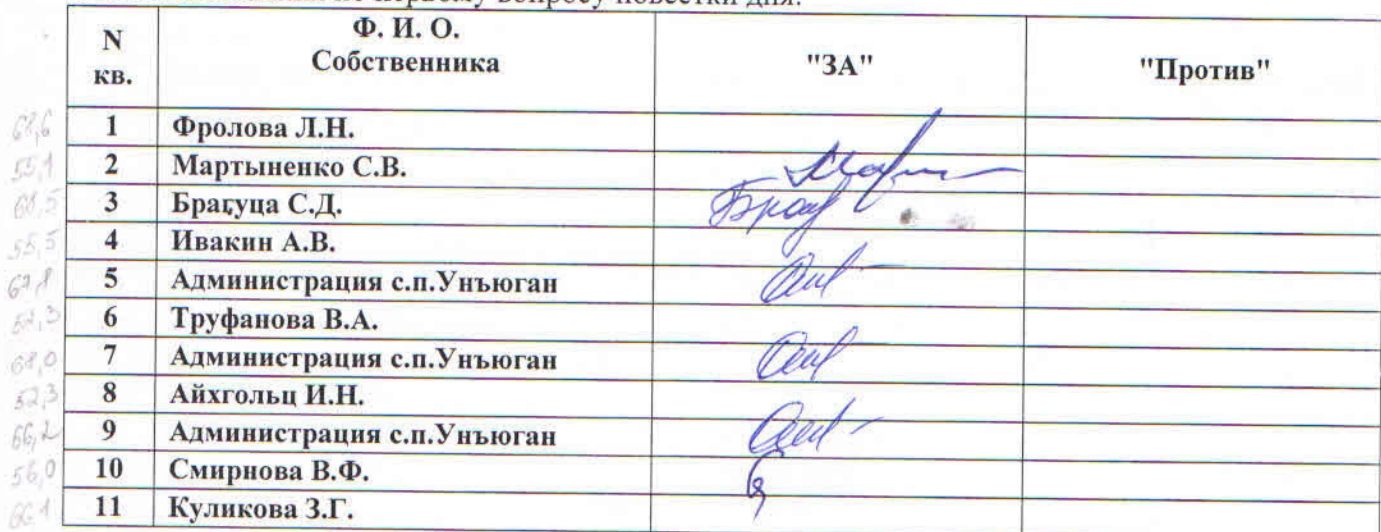 по первому вопросу повестки дня:
N кв. Ф. И. О. Собственника "ЗА" "Против"
68,6 1 Фролова Л.Н.
55,1 2 Мартыненко С.В.
3 Брагуца С.Д.
55,5 4 Ивакин А.В.
5 Администрация с.п.Унъюган
52,3 6 Труфанова В.А.
7 Администрация с.п.Унъюган
52,3 8 Айхгольц И.Н.
66,2 9 Администрация с.п.Унъюган
56,0 10 Смирнова В.Ф.
66,1 11 Куликова З.Г.